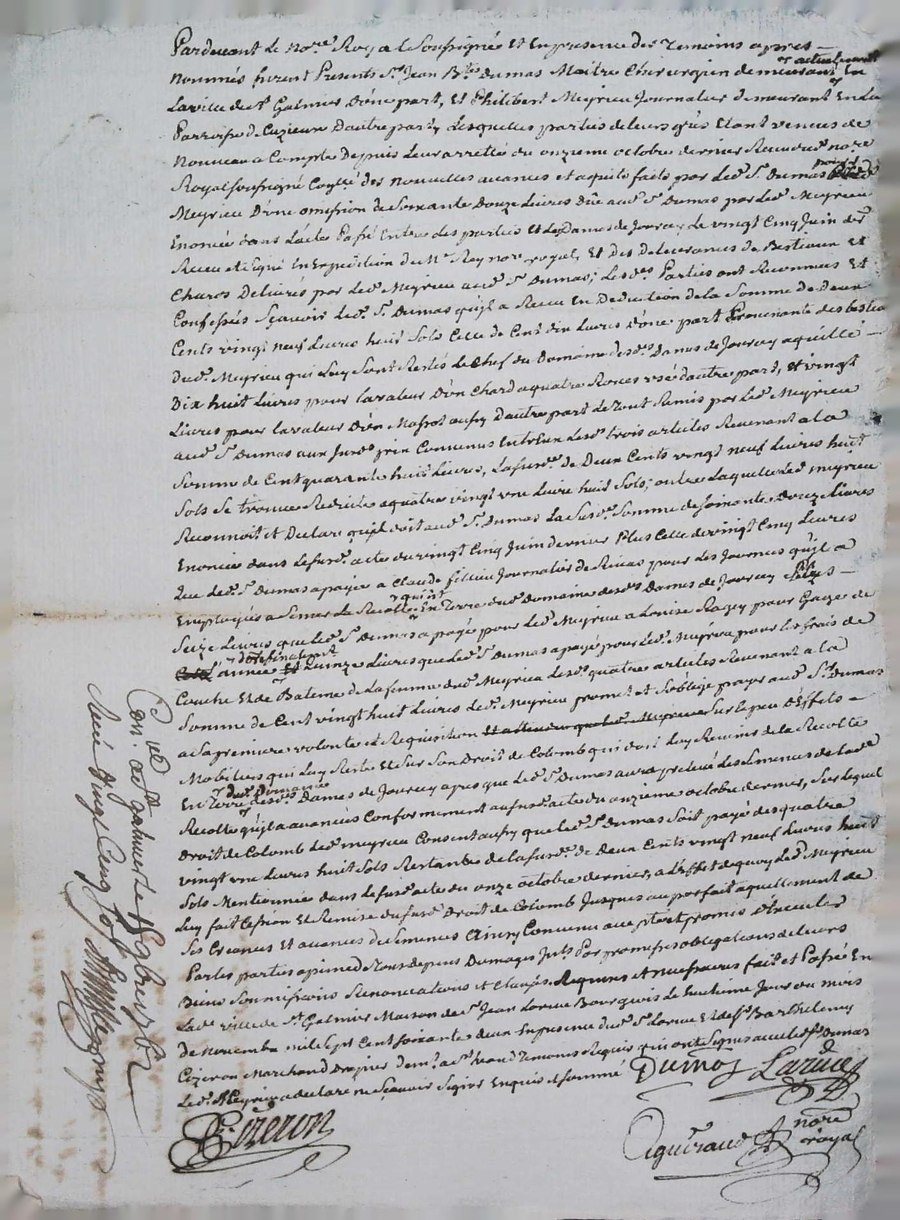 Pardevant Le no.re Royal Soussigné Et En presence des Temoins apres
nommés furent Presents S.r Jean B.te Dumas Maitre Chirurgien demeurant actuellement En
La ville de S.t Galmier D'une part, Et Philibert Meyrieu Journalier demeurant En La
Parroisse de Cuzieux Dautre part, Lesquelles parties de leurs grés Etant venues de
Nouveau a Compte Depuis Leur arretté du onzieme octobre dernier Receu de no.re
Royal soussigné des nouvelles avances et aquits faits par Led. S.r Dumas
Meyrieu D'une omission de Soixante Douze Livres Due aud. S.r Dumas par Led. Meyrieu
Enoncée dans L'acte Passé Entre des parties et Les Dames de Jourcey Le vingt Cinq Juin der
Receu et Signé En Expedition du M.e Rey no.re royal, Et des delivrances de Bestiaux Et
Chards Delivrés par Led. Meyrieu aud. S.r Dumas; Lesd. Parties ont Reconnues Et
Confessés Sçavoir Led. S.r Dumas quil a Receu En Deduction de la Somme de Deux
Cents vingt neuf Livres huit Sols Celle de Cent dix Livres D'une part Provenante des bestiaux
Dud. Meyrieu qui Luy Sont Restés Le Chef du Domaine desd. Dames de Jourcey
Dix huit Livres pour La valeur D'un Chard a quatre Roues usé Dautre part, Et vingt
Livres pour La valeur D'un aussy Dautre part Le Tout Remis par Led. Meyrieu
aud. S.r Dumas aux prix Convenus Entr'Eux Lesd. trois articles Revenant a La
Somme de Cent quarante huit Livres, La Sus.de de Deux Cents vingt neuf Livres huit
Sols Se trouve Reduite a quatre vingt une Livre huit Sols; outre Laquelle Led. Meyrieu
Reconnoit et Declare quil doit aud. S.r Dumas La Susd. Somme de Soixante Douze Livres
Enoncée dans Le Susd. acte du vingt Cinq Juin dernier Plus Celle de vingt Cinq Livres
Que Led. S.r Dumas a payée a Claude Journalier de Rivas pour Les Journées quil a
Employées a Semer La Recolte qui Est En Terre dud. Domaine desd. Dames de Jourcey Plus
Seize Livres que Led. S.r Dumas a payé pour Led. Meyrieu a Louise pour Gages de
année Et finalement Quinze Livres que Led. S.r Dumas a payé pour Led. Meyrieu pour Les frais de
Couche Et de Bateme de La femme dud. Meyrieu Lesd. quatre articles Revenant a La
Somme de Cent vingt huit Livres Led. Meyrieu promet et S'oblige payer aud. S.r Dumas
a Sa premiere volonté et Requisition Sur Le peu D'Effets
Mobiliers qui Luy Reste Et Sur Son Droit de Colomb qui doit Luy Revenir de La Recolte
En Terre dud. Domaine desd. Dames de Jourcey apres que Led. S.r Dumas aura prelevé Les Semences de Lad.
Recolte quil a avancées Conformement au Susd. acte du onzieme octobre dernier, Sur Lequel
Droit de Colomb Led. Meyrieu Consent aussy que Led. S.r Dumas Soit payé des quatre
vingt une Livres huit Sols Restantes de La Susd. de Deux Cents vingt neuf Livres huit
Sols Mentionnée dans Le Susd. acte du onze octobre dernier, a L'Effet de quoy Led. Meyrieu
Luy fait Cession Et Remise du Susd. Droit de Colomb Jusques au parfait aquittement de
Ses Creances Et avances de Semences Ainsy Convenu accepté et promis Executer
Par les parties a peine de Tous depens Dommages Ints. Par promesses obligations de Leurs
Biens Soumissions Renonciations et Clauses Requises et necessaires fait et Passé En
Lad. ville de S.t Galmier Maison de S.r Jean Larue Bourgeois Le huitieme Jour du mois
De Novembre mil Sept Cent Soixante deux En presence dud. S.r Larue Et de S.r Barthelemy
Cizeron Marchand Drapier dem.t a S.t Temoins Requis qui ont Signés avec Led. S.r Dumas
Led. Meyrieu a declaré ne Sçavoir Signer Enquis et Sommé
Dumas Larue
Cizeron
Aguiraud no.re royal
Con.lé à S.t Galmier Le 18 9bre 1762
Receu vingt Cinq Sols